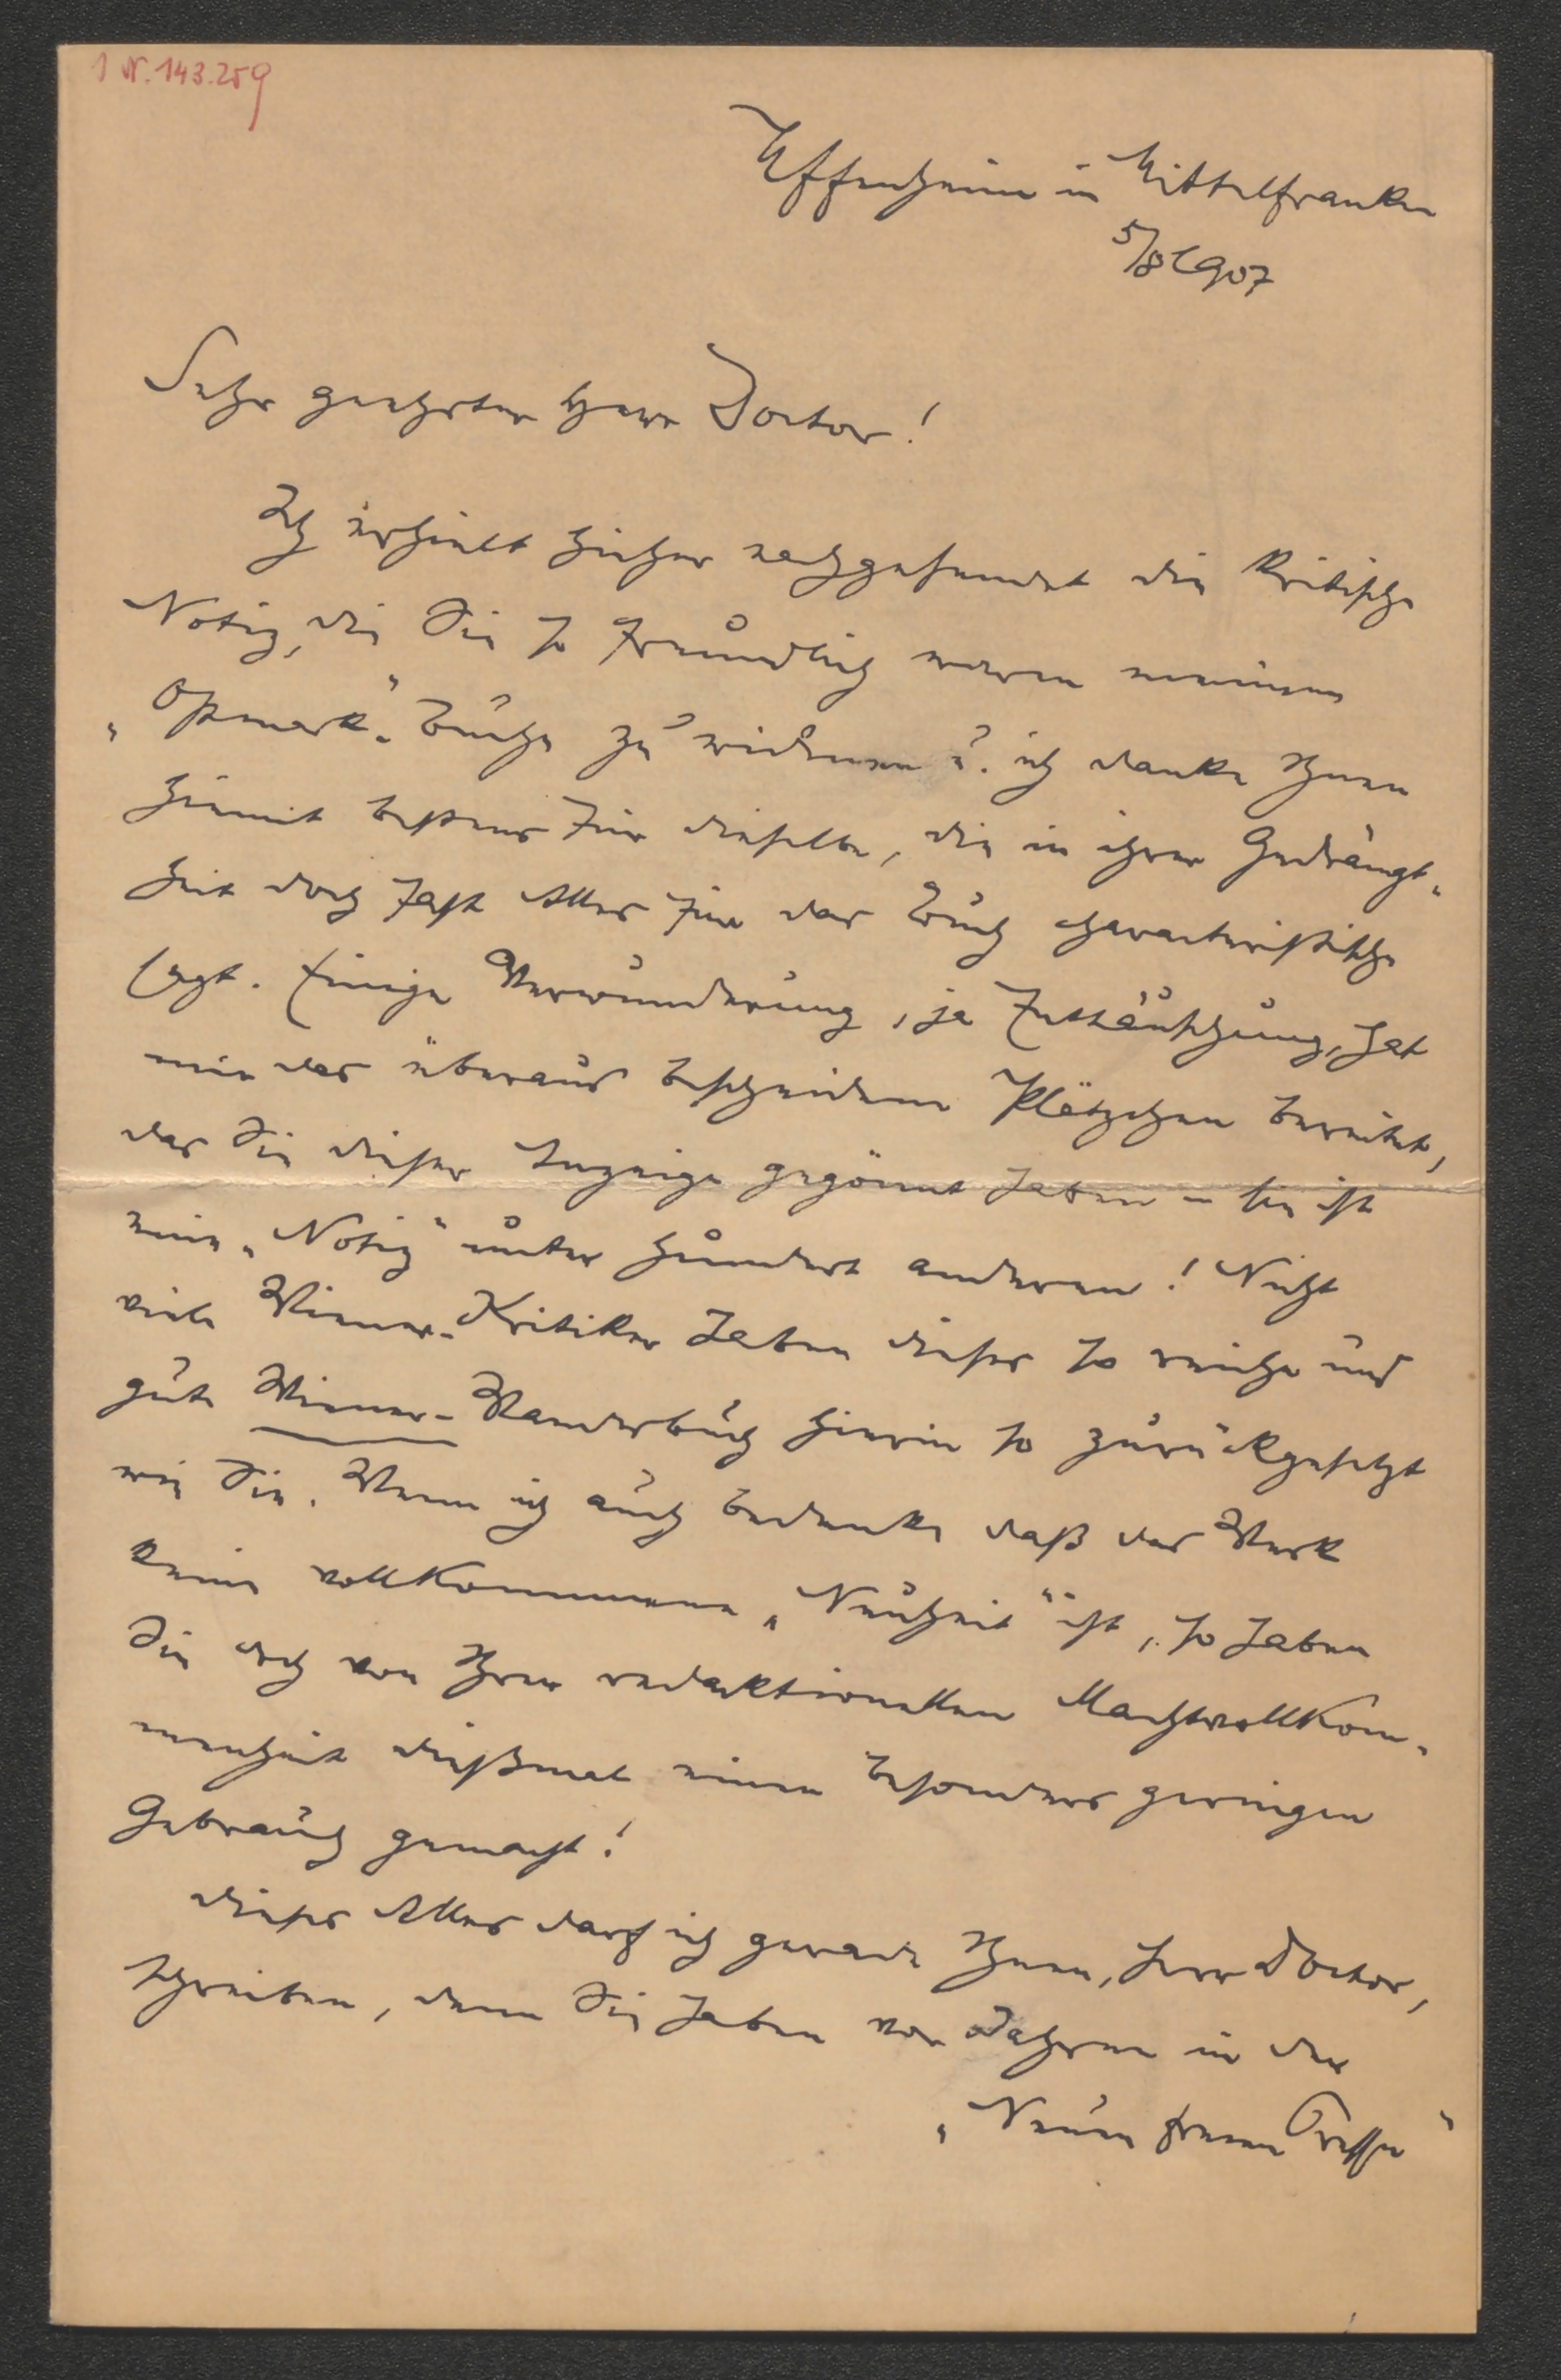 I N. 143.259
Uffenheim in Mittelfranken
5/8 1907
Sehr geehrter Herr Doctor!
Ich erhielt hieher nachgesendet die kritische
Notiz, die Sie so freundlich waren meinem
"Ostmark"-Buche zu widmen u. ich danke Ihnen
hiemit bestens für dieselbe, die in ihrer Gedrängt-
heit doch fast Alles für das Buch charakteristische
sagt. Einige Verwunderung, ja Enttäuschung, hat
mir das überaus bescheidene Plätzchen bereitet,
das Sie dieser Anzeige gegönnt haben – sie ist
eine "Notiz" unter hundert anderen! Nicht
viele Wiener-Kritiker haben dieses so reiche und
gute Wiener-Wanderbuch hierin so zurückgesetzt
wie Sie. Wenn ich auch bedenke daß das Werk
keine vollkommene "Neuheit" ist, so haben
Sie doch von Ihrer redaktionellen Machtvollkom-
menheit dießmal einen besonders geringen
Gebrauch gemacht!
Dieses Alles darf ich gerade Ihnen, Herr Doctor,
schreiben, denn Sie haben vor Jahren in der
"Neuen freien Presse"